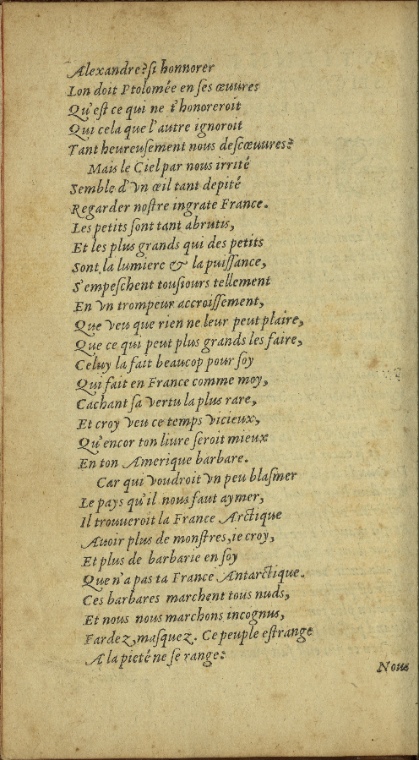 Alexandre? si honnorer
Lon doit Ptolomée en ses œuures
Qu'est ce qui ne t'honoreroit
Qui cela que l'autre ignoroit
Tant heureusement nous descœuures?
Mais le Ciel par nous irrité
Semble d'vn œil tant depité
Regarder nostre ingrate France.
Les petits sont tant abrutis,
Et les plus grands qui des petits
Sont la lumiere & la puissance,
S'empeschent tousiours tellement
En vn trompeur accroissement,
Que veu que rien ne leur peut plaire,
Que ce qui peut plus grands les faire,
Celuy la fait beaucop pour soy
Qui fait en France comme moy,
Cachant sa vertu la plus rare,
Et croy veu ce temps vicieux,
Qu'encor ton liure seroit mieux
En ton Amerique barbare.
Car qui voudroit vn peu blasmer
Le pays qu'il nous faut aymer,
Il trouueroit la France Arctique
Auoir plus de monstres, ie croy,
Et plus de barbarie en soy
Que n'a pas ta France Antarctique.
Ces barbares marchent tous nuds,
Et nous nous marchons incognus,
Fardez, masquez. Ce peuple estrange
A la pieté ne se range:
Nous